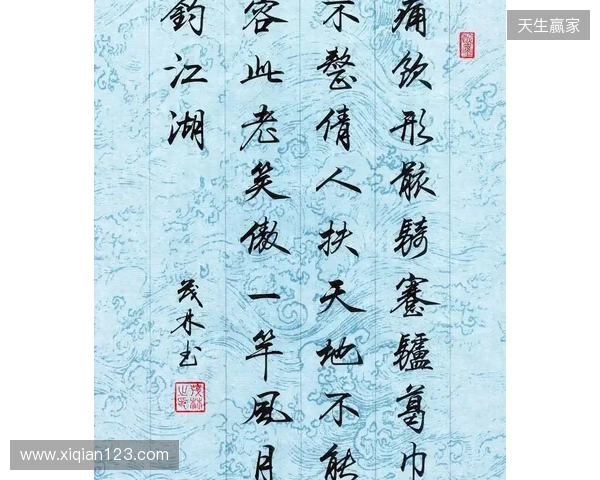 痛飲形骸騎蹇驢葛巾
不整倩人扶天地不能
容此老笑傲一竿風月
釣江湖
茂林书
天生赢家
www.xiqian123.com